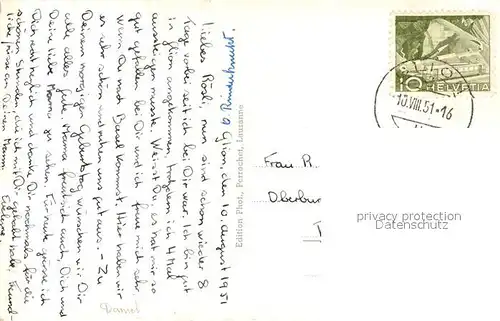 Glion, den 10. August 1951
Liebes Rösli, nun sind schon wieder 8
Tage vorbei seit ich bei Dir war. Ich bin gut
in Glion angekommen, trotzdem ich 4 Mal
aussteigen musste. Weisst Du, es hat mir so
gut gefallen bei Dir und ich freue mich sehr,
wann Du nach Basel kommst. Hier haben wir
es sehr schön und ruhen uns gut aus. - Zu
Deinem morgigen Geburtstag wünschen wir Dir
alle alles gute. Mama freut sich auch, Dich und
Deine liebe Mama zu sehen. Für heute grüsse ich
Dich recht herzlich und danke Dir nochmals für die
schönen Stunden, die ich mit Dir gehabt habe. Freund-
liche Grüsse an Deinen Mammi
Edition Phot. Perrochet, Lausanne
10
HELVETIA
10.VIII.51-16
Frau R.
Oberbur
privacy protection
Datenschutz